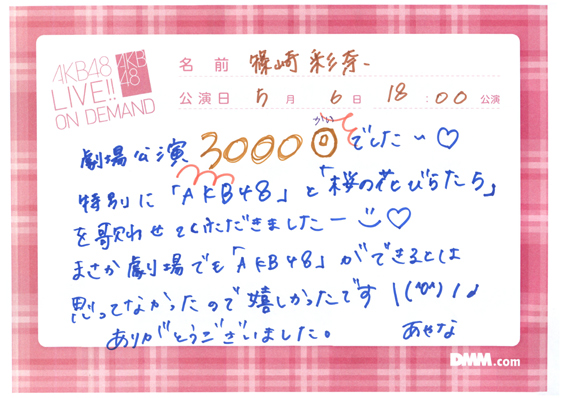 AKB48
LIVE!!
ON DEMAND
AKB
48
名前 篠崎 彩奈
公演日 5月 6日 18:00 公演
かい
劇場公演 3000回でした〜♡
特別に「AKB48」と「桜の花びらたち」
を歌わせていただきましたー♡
まさか劇場でも「AKB48」ができるとは
思ってなかったので嬉しかったです \(^o^)/♪
ありがとうございました。 あやな
DMM.com